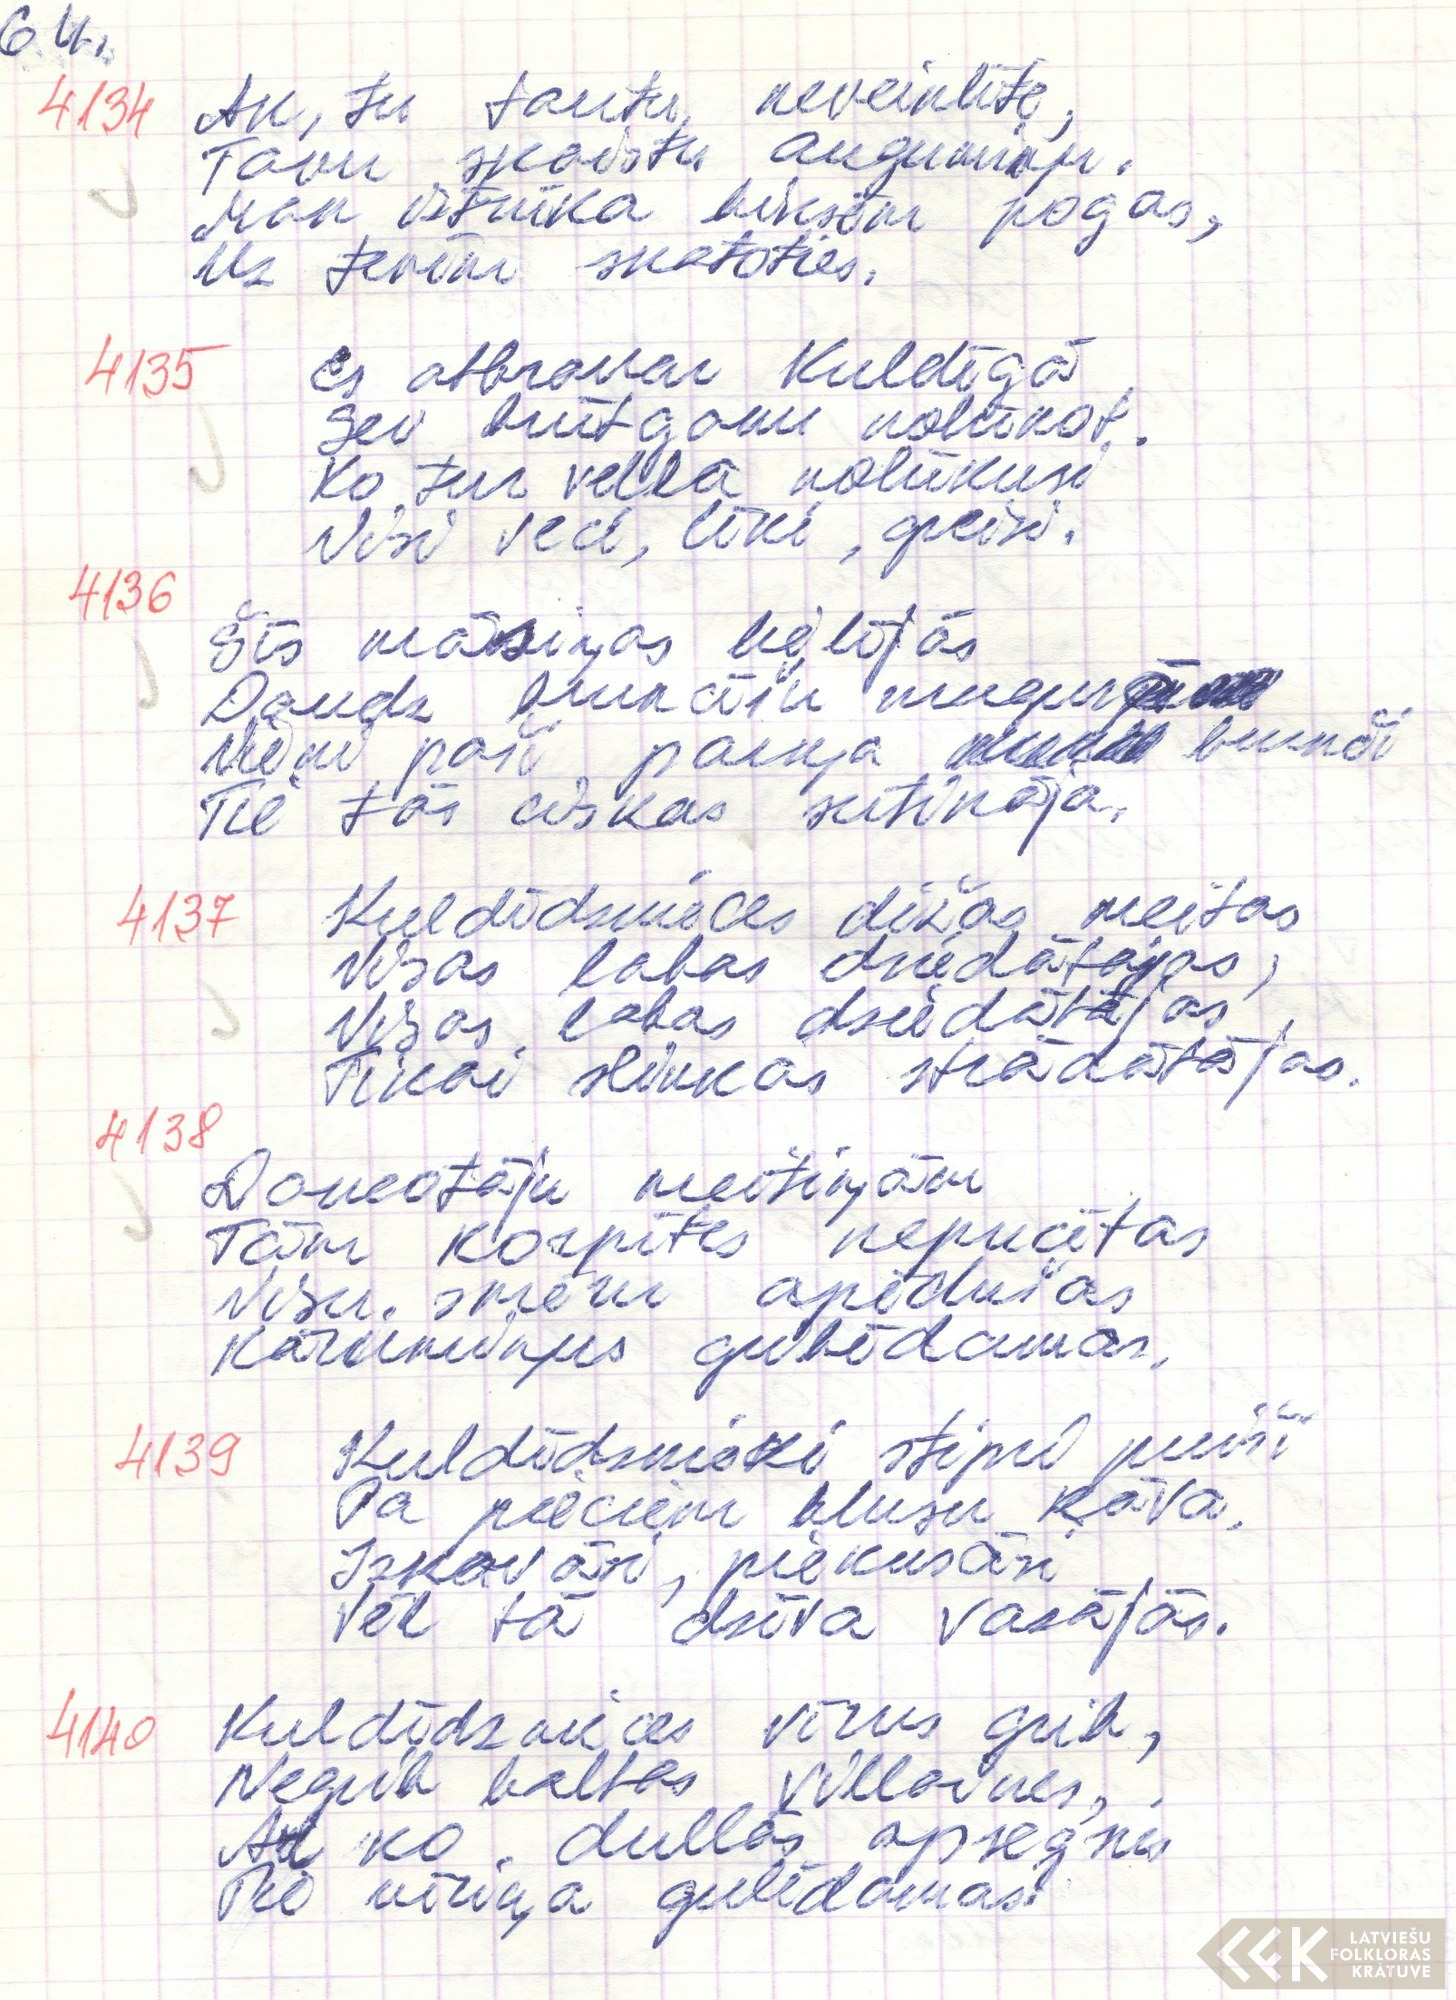 64.
4134 Ak, tu tautu neveiklīte,
Tavu skaistu augumiņu.
Man iztrūka biksēm pogas,
Uz tevīm skatoties.
4135 Es atbraucu Kuldīgā
Sev brūtgānu nolūkot.
Ko tur vella nolūkusi
Visi veci, līki, greizi.
4136
Šīs māsiņas lielījās
Daudz brunčiņu mugurā
Vieni paši pakuļa brunči
Tie tās ciskas sutināja.
4137 Kuldīdznieces dižas meitas
Visas labas dziedātājas,
Visas labas dziedātājas
Tikai slinkas strādātājas.
4138
Dancotāju meitiņām
Tām kurpītes nepucētas
Visu smēru apēdušas
Kārumiņus gribēdamas.
4139 Kuldīdznieki stipri puiši
Pa pieciem blusu kāva,
Izkāvāsi, piekusāsi
Vēl tā dzīva vazājās.
4140 Kuldīdznieces vīrus grib,
Negrib baltas villaines,
Ar ko dullās apsegsies
Pie vīriņa gulēdamas.
LATVIEŠU
FOLKLORAS
KRĀTUVE